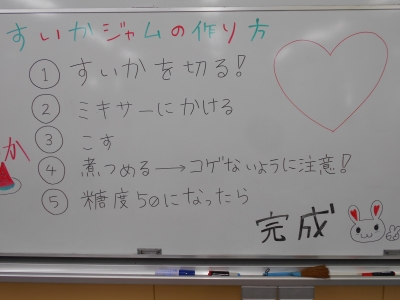 すいかジャムの作り方
① すいかを切る!
② ミキサーにかける
③ こす
か
④ 煮つめる→コゲないように注意!
⑤ 糖度50になったら
完成